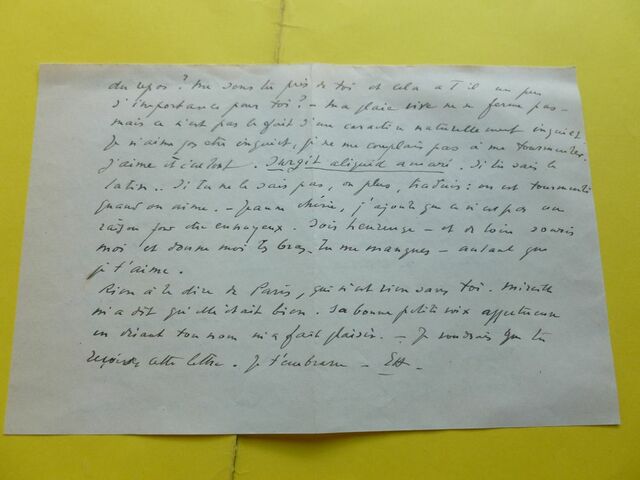 du repos? Me sens tu près de toi et cela a t'il un peu
d'importance pour toi? - ma plaie vive ne se ferme pas -
mais ce n'est pas le fait d'un caractère naturellement inquiet
Je n'aime pas être inquiet, je ne me complais pas à me tourmenter.
J'aime et c'est tout. Surgit aliquid amari. Si tu sais le
latin.. Si tu ne le sais pas, ou plus, traduis: on est tourmenté
quand on aime. - Jeanne chérie, j'ajoute que ce n'est pas une
raison pour être ennuyeux. Sois heureuse - et de loin souris
moi et donne moi tes bras. Tu me manques - autant que
je t'aime.
Rien à te dire de Paris, qui n'est rien sans toi. Mireille
m'a dit qu'elle était bien. Sa bonne petite voix affectueuse
en disant ton nom m'a fait plaisir. - Je voudrais que tu
reçoives cette lettre. Je t'embrasse -